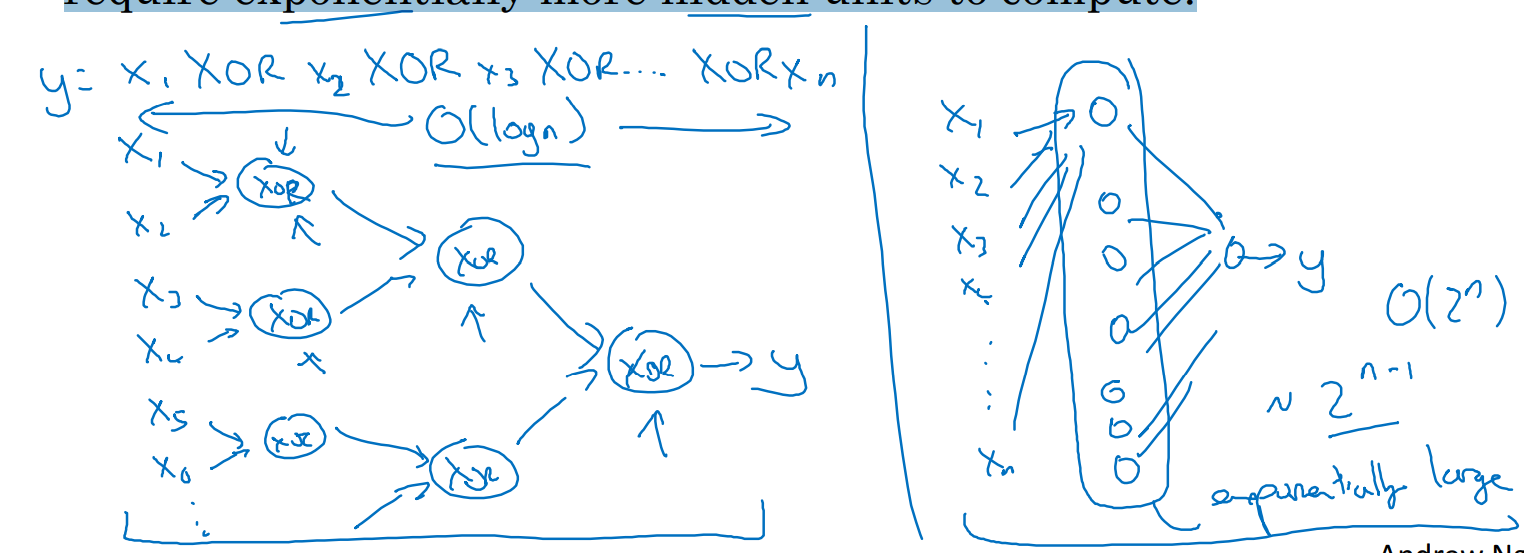 require exponentially more hidden units to compute.
y= x₁ XOR x₂ XOR x₃ XOR.... XOR xₙ
O(log n)
x₁
XOR
x₂
XOR
x₃
XOR
x₄
XOR → y
x₅
XOR
x₆
XOR
x₁
x₂
x₃
x₄
xₙ
y
O(2ⁿ)
~ 2ⁿ⁻¹
exponentially large
Andrew